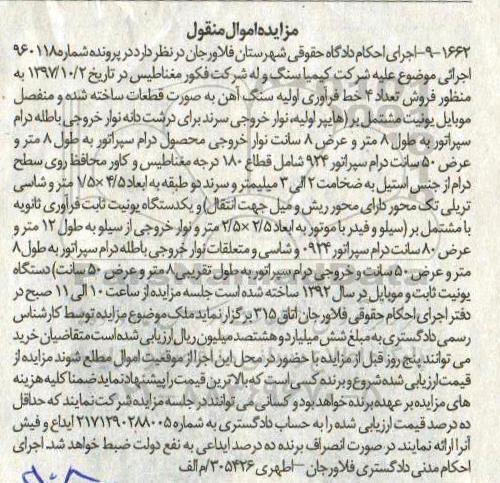 مزایده اموال منقول
۱۶۶۲-۹-اجرای احکام دادگاه حقوقی شهرستان فلاورجان در نظر دارد در پرونده شماره ۹۶۰۱۱۸
اجرائی موضوع علیه شرکت کیمیا سنگ و له شرکت فکور مغناطیس در تاریخ ۱۳۹۷/۱۰/۲ به
منظور فروش تعداد ۴ خط فرآوری اولیه سنگ آهن به صورت قطعات ساخته شده و منفصل
موبایل یونیت مشتمل بر (هاپیر اولیه، نوار خروجی سرند برای درشت دانه نوار خروجی باطله درام
سپراتور به طول ۸ متر و عرض ۸ سانت نوار خروجی محصول درام سپراتور به طول ۸ متر و
عرض ۵۰ سانت درام سپراتور ۹۲۴ شامل قطاع ۱۸۰ درجه مغناطیس و کاور محافظ روی سطح
درام از جنس استیل به ضخامت ۲ الی ۳ میلیمتر و سرند دو طبقه به ابعاد ۴/۵×۱/۵ متر و شاسی
تریلی تک محور دارای محور ریش و میل جهت انتقال) و یکدستگاه یونیت ثابت فرآوری ثانویه
با مشتمل بر (سیلو و فیدر با موتور به ابعاد ۲/۵×۲/۵ متر و نوار خروجی از سیلو به طول ۱۲ متر و
عرض ۸۰ سانت درام سپراتور ۰۹۲۴ و شاسی و متعلقات نوار خروجی باطله درام سپراتور به طول ۸
متر و عرض ۵۰ سانت و خروجی درام سپراتور به طول تقریبی ۸ متر و عرض ۵۰ سانت) دستگاه
یونیت ثابت و موبایل در سال ۱۳۹۲ ساخته شده است جلسه مزایده از ساعت ۱۰ الی ۱۱ صبح در
دفتر اجرای احکام حقوقی فلاورجان اتاق ۳۱۵ برگزار نماید ملک موضوع مزایده توسط کارشناس
رسمی دادگستری به مبلغ شش میلیارد و هشتصد میلیون ریال ارزیابی شده است متقاضیان خرید
می توانند پنج روز قبل از مزایده با حضور در محل این اجرا از موقعیت اموال مطلع شوند مزایده از
قیمت ارزیابی شده شروع و برنده کسی است که بالاترین قیمت را پیشنهاد نماید ضمنا کلیه هزینه
های مزایده بر عهده برنده خواهد بود و کسانی می توانند در جلسه مزایده شرکت نمایند که حداقل
ده درصد قیمت ارزیابی شده را به حساب دادگستری به شماره ۲۱۷۱۲۹۰۲۸۸۰۰۵ ایداع و فیش
آنرا ارائه نمایند. در صورت انصراف برنده ده درصد ایداعی به نفع دولت ضبط خواهد شد. اجرای
احکام مدنی دادگستری فلاورجان - اطهری ۳۰۵۴۲۶/م الف